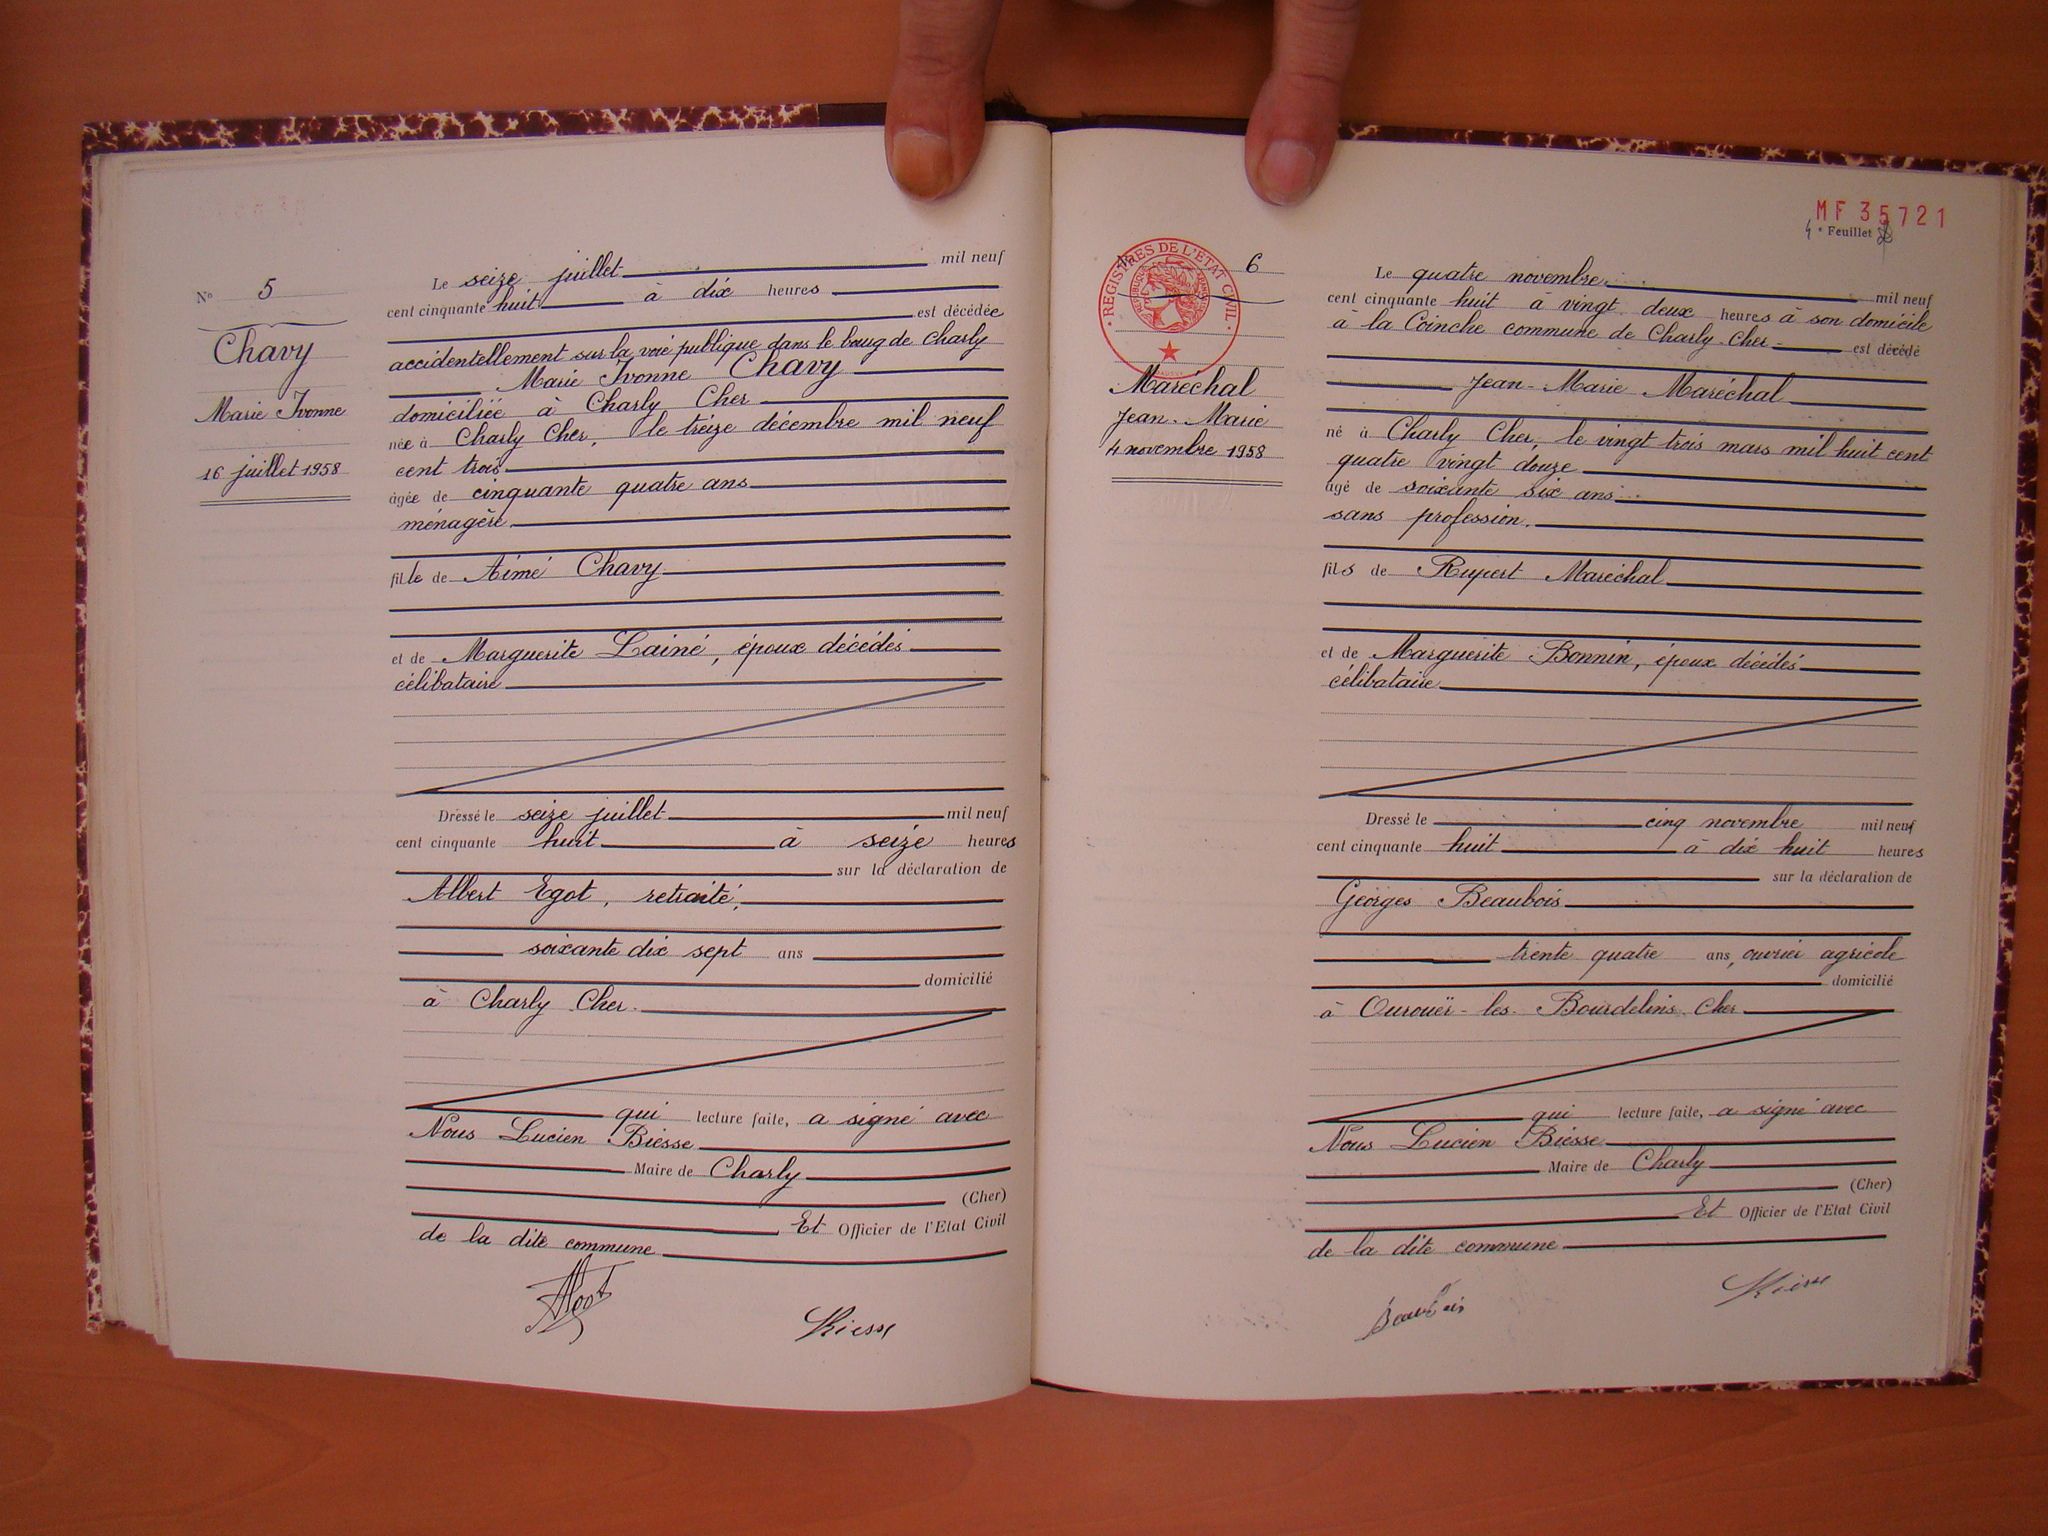 Nº 5
Chavy
Marie Ivonne
16 juillet 1958
Le seize juillet mil neuf
cent cinquante huit à dix heures
est décédée
accidentellement sur la voie publique dans le bourg de Charly
Marie Ivonne Chavy
domiciliée à Charly Cher
née à Charly Cher, le treize décembre mil neuf
cent trois
âgée de cinquante quatre ans
ménagère
fille de Aimé Chavy
et de Marguerite Lainé, époux décédés
célibataire
Dressé le seize juillet mil neuf
cent cinquante huit à seize heures
sur la déclaration de
Albert Egot, retraité,
soixante dix sept ans
domicilié
à Charly Cher.
qui lecture faite, a signé avec
Nous Lucien Biesse
Maire de Charly
(Cher)
Et Officier de l'Etat Civil
de la dite commune
Biesse
MF 35721
4e Feuillet
REGISTRES DE L'ETAT CIVIL
6
Maréchal
Jean-Marie
4 novembre 1958
Le quatre novembre mil neuf
cent cinquante huit à vingt deux heures à son domicile
à la Coinche commune de Charly-Cher est décédé
Jean-Marie Maréchal
né à Charly Cher, le vingt trois mars mil huit cent
quatre vingt douze
âgé de soixante six ans
sans profession.
fils de Rupert Maréchal
et de Marguerite Bonnin, époux décédés
célibataire
Dressé le cinq novembre mil neuf
cent cinquante huit à dix huit heures
sur la déclaration de
Georges Beaubois
trente quatre ans, ouvrier agricole
domicilié
à Ourouër-les-Bourdelins Cher
qui lecture faite, a signé avec
Nous Lucien Biesse
Maire de Charly
(Cher)
Et Officier de l'Etat Civil
de la dite commune
Beaubois
Biesse